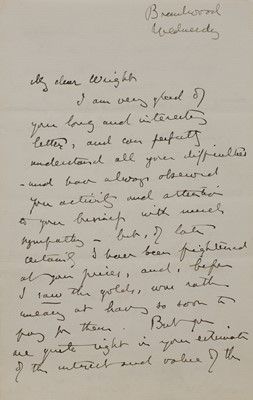 Brantwood
Wednesday
My dear Wright
I am very glad of
your long and interesting
letter, and can perfectly
understand all your difficulties
- and have always observed
your activity and attention
to your business with much
sympathy - but, of late
certainly I have been frightened
at your prices, and, before
I saw the golds, was rather
uneasy at having so soon to
pay for them. But you
are quite right in your estimate
of the interest and value of the